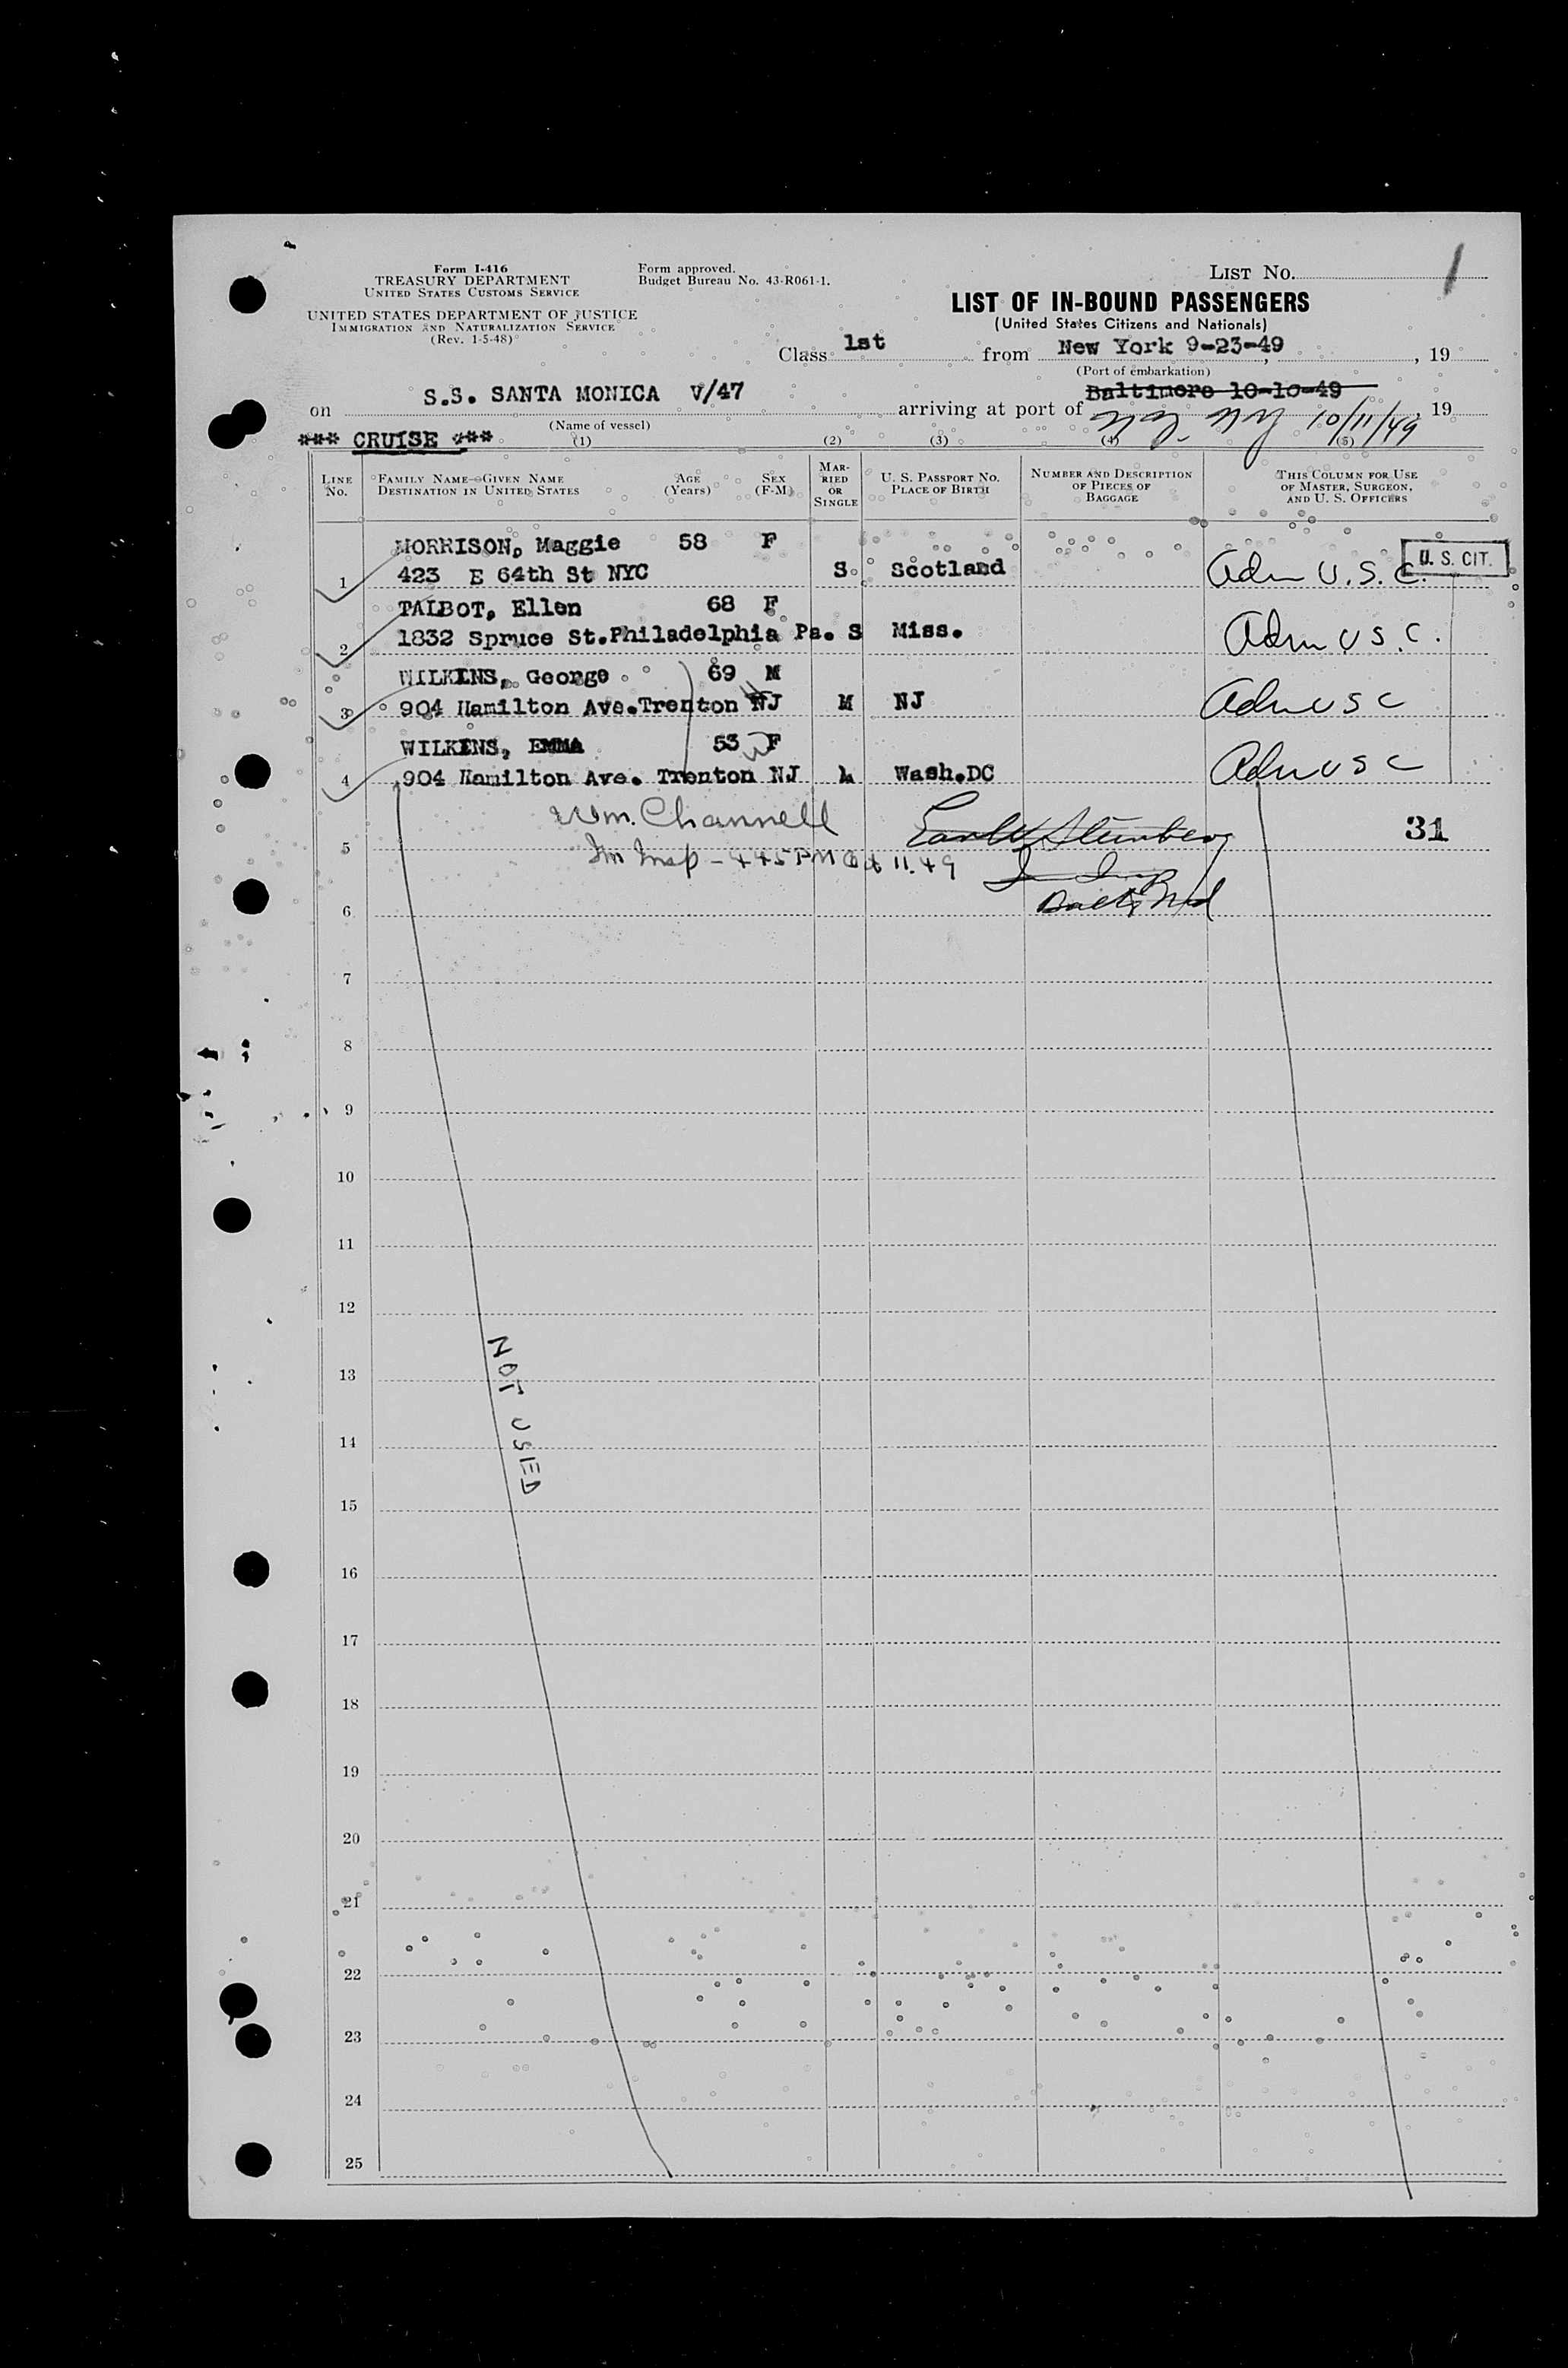 Form I-416
TREASURY DEPARTMENT
UNITED STATES CUSTOMS SERVICE
UNITED STATES DEPARTMENT OF JUSTICE
IMMIGRATION AND NATURALIZATION SERVICE
(Rev. 1-5-48)
Form approved.
Budget Bureau No. 43-R061-1.
LIST NO. 1
LIST OF IN-BOUND PASSENGERS
(United States Citizens and Nationals)
Class 1st from New York 9-23-49, 19
(Port of embarkation)
on S.S. SANTA MONICA V/47 arriving at port of Baltimore 10-10-49, 19
NY 10/11/49
(Name of vessel)
*** CRUISE ***
(1) (2) (3) (4) (5)
LINE NO.
FAMILY NAME—GIVEN NAME
DESTINATION IN UNITED STATES
AGE (Years)
SEX (F-M)
MARRIED OR SINGLE
U. S. PASSPORT NO.
PLACE OF BIRTH
NUMBER AND DESCRIPTION OF PIECES OF BAGGAGE
THIS COLUMN FOR USE OF MASTER, SURGEON, AND U. S. OFFICERS
MORRISON, Maggie 58 F
1 423 E 64th St NYC S Scotland Adm U.S.C. U. S. CIT.
TALBOT, Ellen 68 F
2 1832 Spruce St.Philadelphia Pa. S Miss. Adm U S. C.
WILKINS, George 69 M
3 904 Hamilton Ave.Trenton NJ M NJ Adm U S C
WILKINS, EMMA 53 F
4 904 Hamilton Ave. Trenton NJ M Wash.DC Adm U S C
Wm. Channell
5 31
Im Insp - 445 PM Oct 11.49
6 Balto Md
7
8
9
10
11
12
13
NOT USED
14
15
16
17
18
19
20
21
22
23
24
25